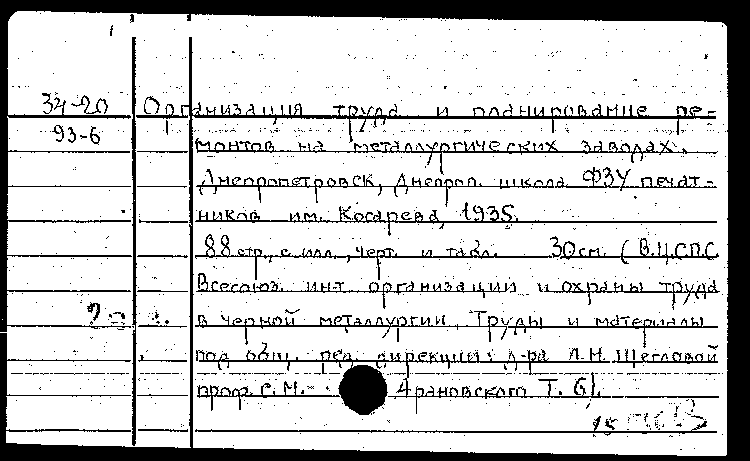 34-20 Организация труда и планирование ре-
93-6 монтов на металлургических заводах.
Днепропетровск, Днепроп. школа ФЗУ печат-
ников им. Косарева, 1935.
88 стр., с илл., черт. и табл. 30 см. (В.Ц.С.П.С.
Всесоюз. инт. организации и охраны труда
в черной металлургии. Труды и материалы
под общ. ред. дирекции: д-ра Л.М. Щегловой
проф. С.М. Арановского Т. 6).